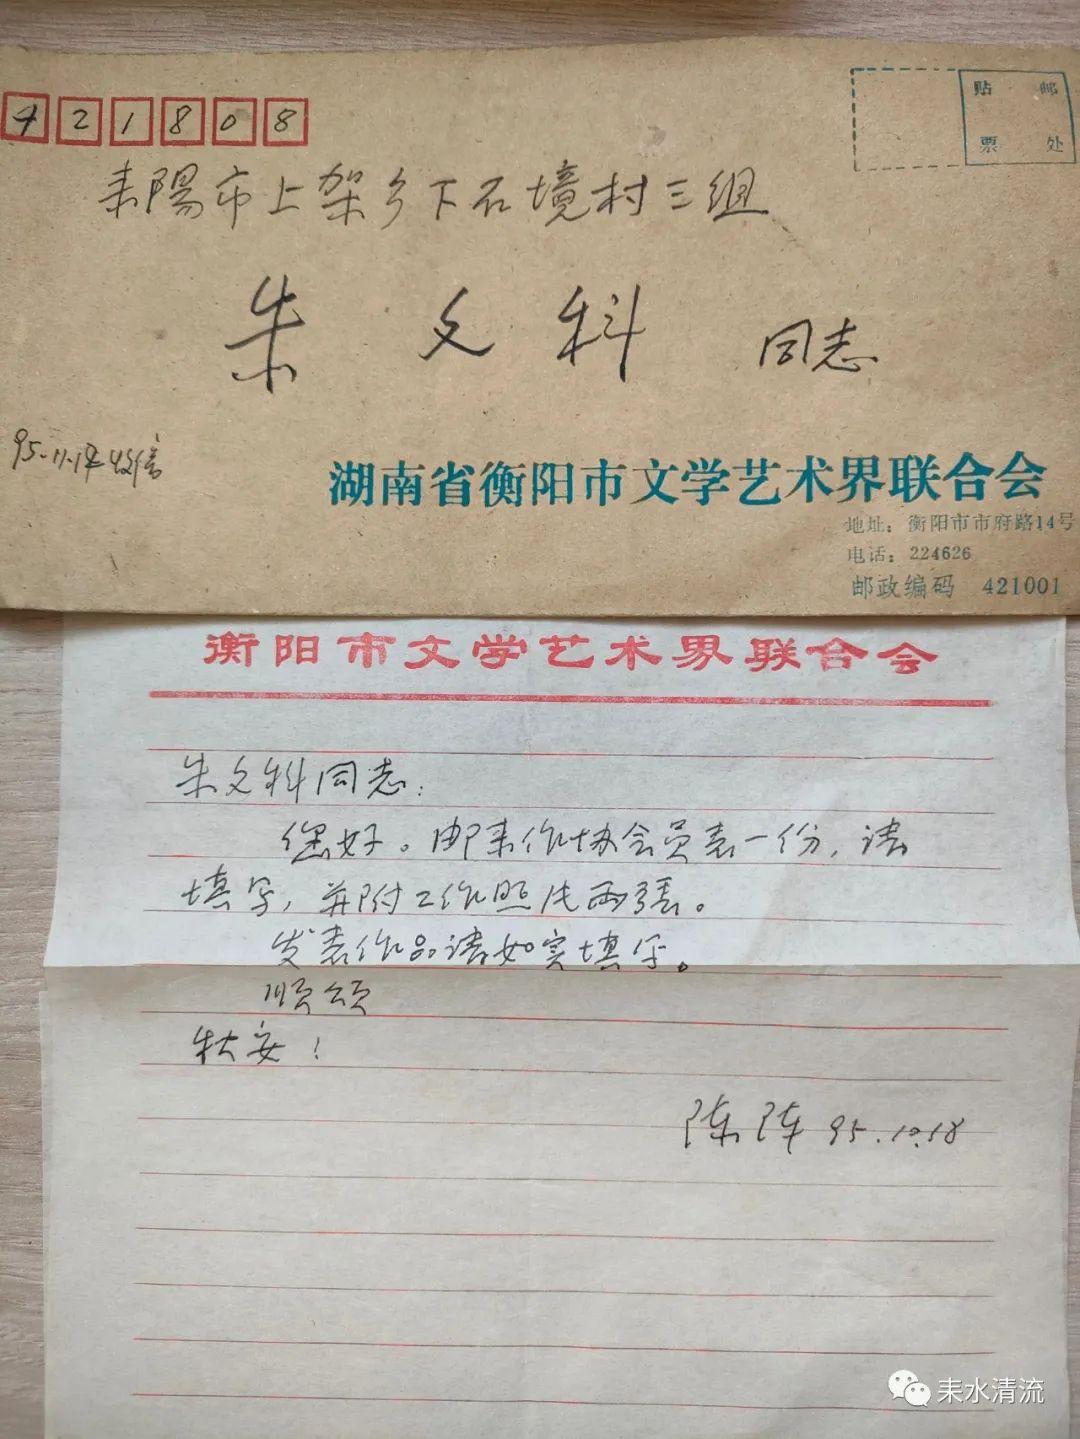 421808
贴 邮
票 处
耒陽市上架乡下石境村三组
朱文科 同志
95.11.14收信
湖南省衡阳市文学艺术界联合会
地址：衡阳市市府路14号
电话：224626
邮政编码 421001
衡阳市文学艺术界联合会
朱文科同志：
您好。邮来作协会员表一份，请
填写，并附工作照片两張。
发表作品请如实填写。
顺颂
秋安！
陈阵 95.10.18
耒水清流